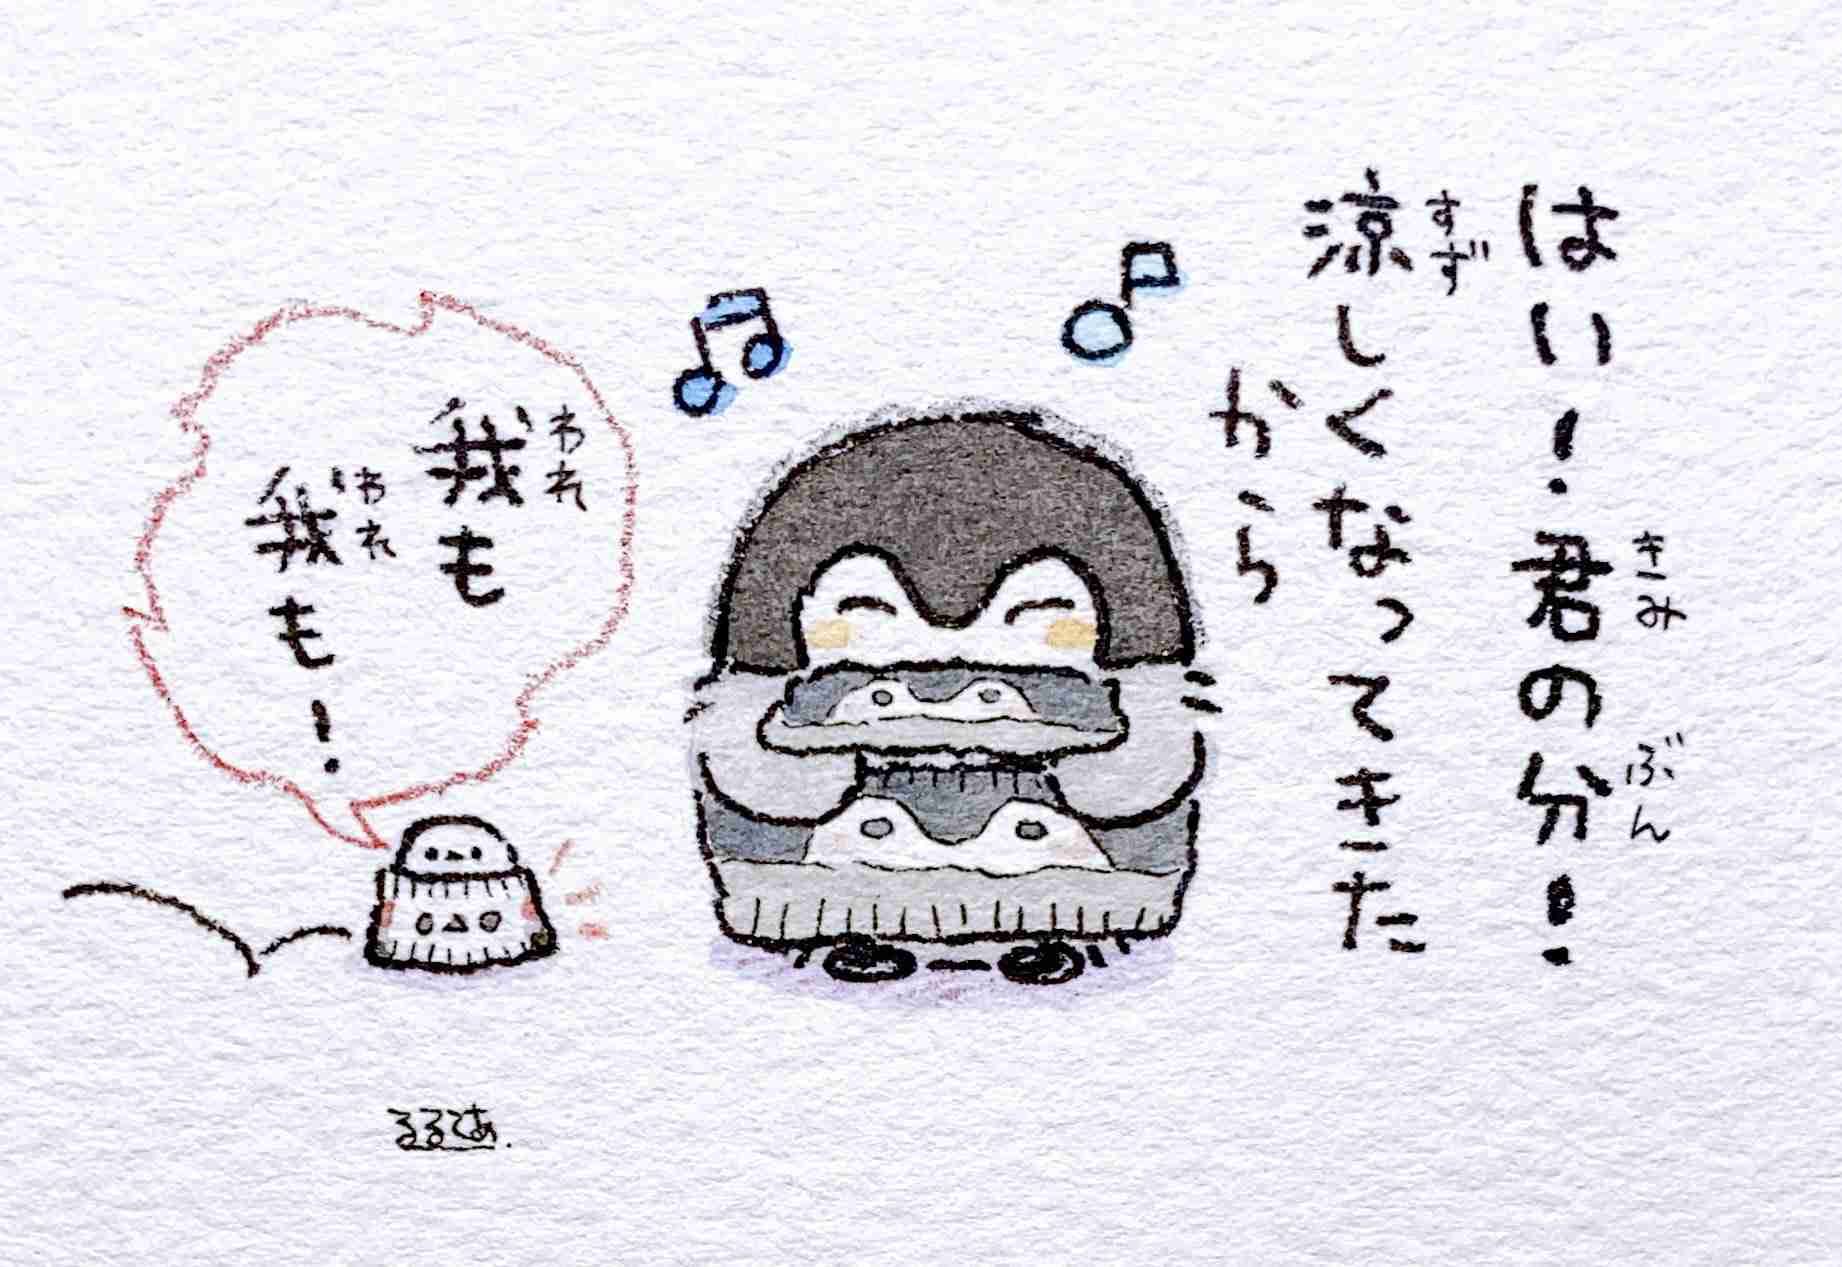 はい！君の分！
涼しくなってきた
から
我も
我も！
るるてあ.